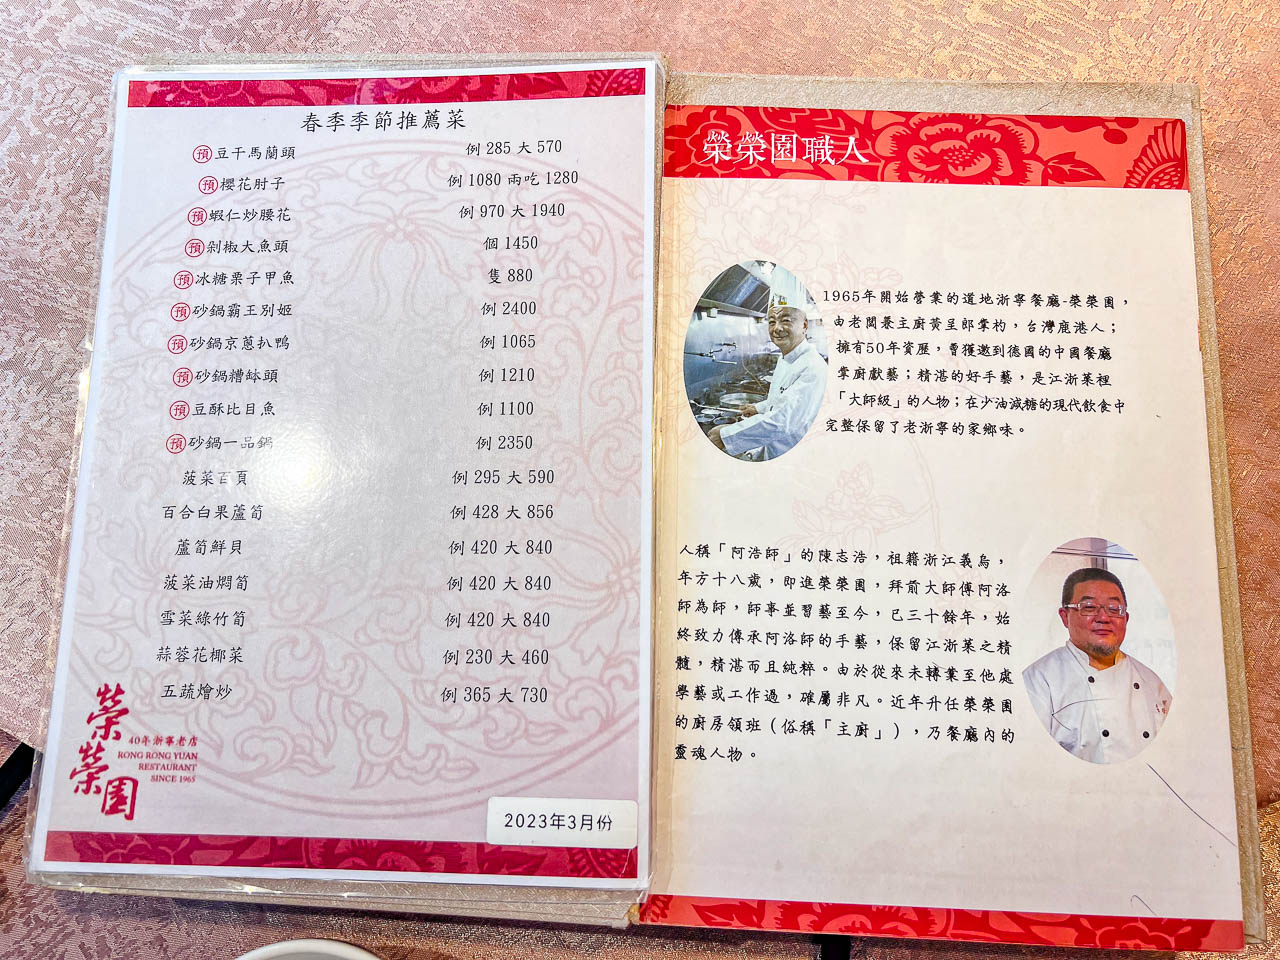 春季季節推薦菜
預 豆干馬蘭頭 例 285 大 570
預 櫻花肘子 例 1080 兩吃 1280
預 蝦仁炒腰花 例 970 大 1940
預 剁椒大魚頭 個 1450
預 冰糖栗子甲魚 隻 880
預 砂鍋霸王別姬 例 2400
預 砂鍋京蔥扒鴨 例 1065
預 砂鍋糟缽頭 例 1210
預 豆酥比目魚 例 1100
預 砂鍋一品鍋 例 2350
菠菜百頁 例 295 大 590
百合白果蘆筍 例 428 大 856
蘆筍鮮貝 例 420 大 840
菠菜油燜筍 例 420 大 840
雪菜綠竹筍 例 420 大 840
蒜蓉花椰菜 例 230 大 460
五蔬燴炒 例 365 大 730
榮榮園
40年浙寧老店
RONG RONG YUAN
RESTAURANT
SINCE 1965
2023年3月份
榮榮園職人
1965年開始營業的道地浙寧餐廳-榮榮園，
由老闆兼主廚黃呈郎掌杓，台灣鹿港人；
擁有50年資歷，曾獲邀到德國的中國餐廳
掌廚獻藝；精湛的好手藝，是江浙菜裡
「大師級」的人物；在少油減糖的現代飲食中
完整保留了老浙寧的家鄉味。
人稱「阿浩師」的陳志浩，祖籍浙江義烏，
年方十八歲，即進榮榮園，拜前大師傅阿洛
師為師，師事並習藝至今，已三十餘年，始
終致力傳承阿洛師的手藝，保留江浙菜之精
髓，精湛而且純粹。由於從來未轉業至他處
學藝或工作過，確屬非凡。近年升任榮榮園
的廚房領班（俗稱「主廚」），乃餐廳內的
靈魂人物。